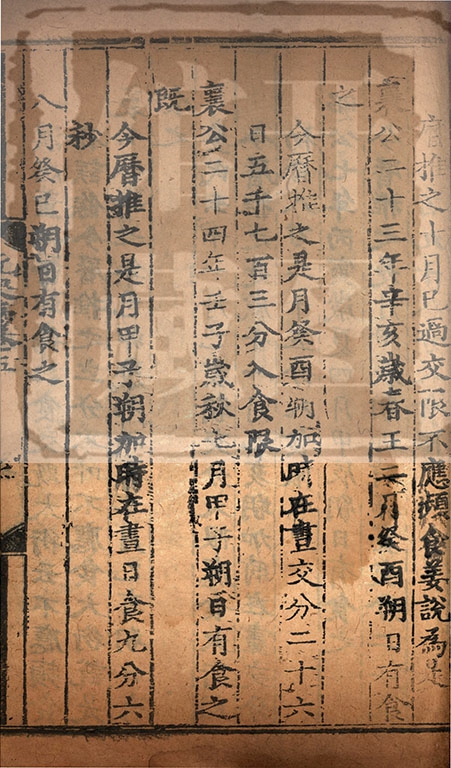 庚推之十月已過交限不應頻食姜說為是
襄公二十三年辛亥歲春王二月癸酉朔日有食
之
今曆推之是月癸酉朔加時在晝交分二十六
日五千七百三分入食限
襄公二十四年壬子歲秋七月甲子朔日有食之
既
今曆推之是月甲子朔加時在晝日食九分六
秒
八月癸巳朔日有食之